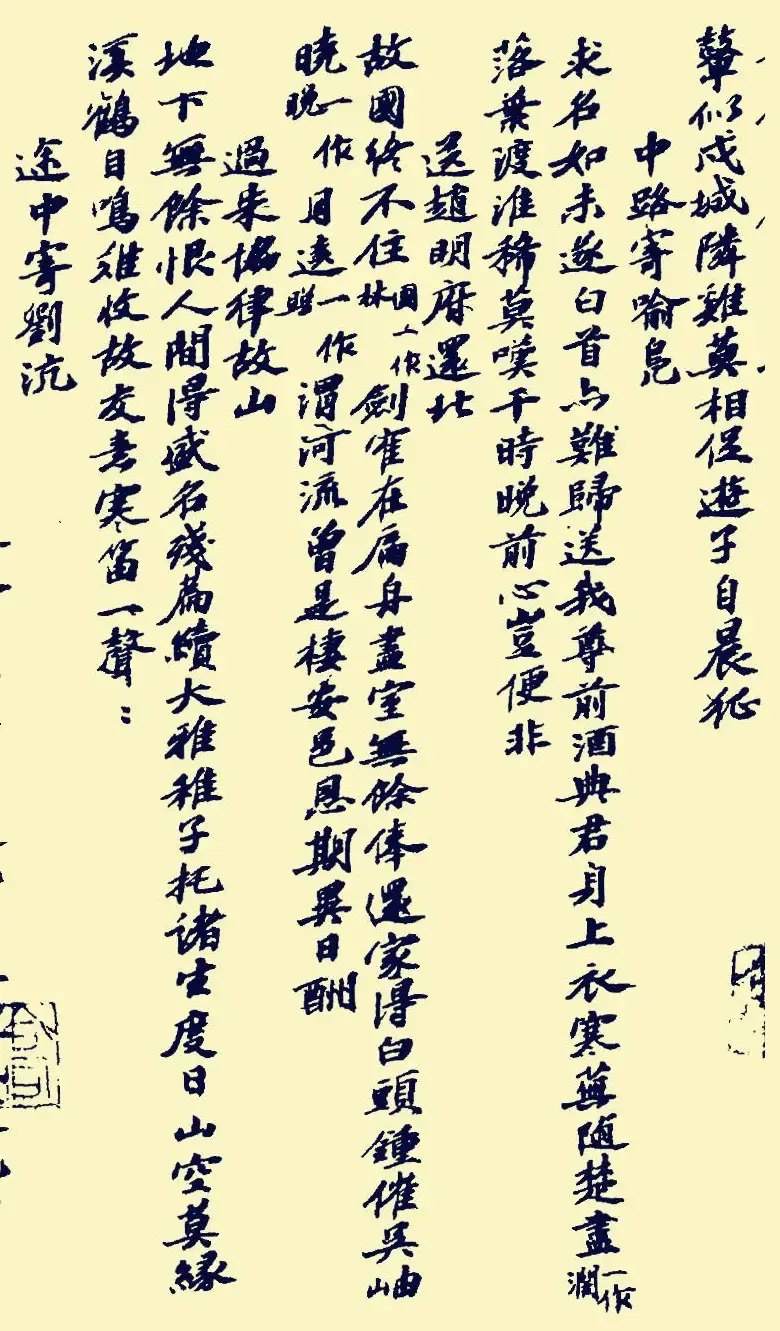 鼙似戍城隣雞莫相促遊子自晨征
中路寄喻鳧
求名如未遂白首亦難歸送我尊前酒典君身上衣寒蕪隨楚盡一作濶
落葉渡淮稀莫嘆干時晚前心豈便非
送趙明府還北
故國終不住國一作林劍隺在扁舟盡室無餘俸還家得白頭鍾催吳岫
曉一作晚月遶一作照渭河流曾是棲安邑恩期異日酬
過朱協律故山
地下無餘恨人間得盛名殘篇續大雅稚子托諸生度日山空莫緣
溪鶴自鳴誰收故友書寒笛一聲：
途中寄劉沆